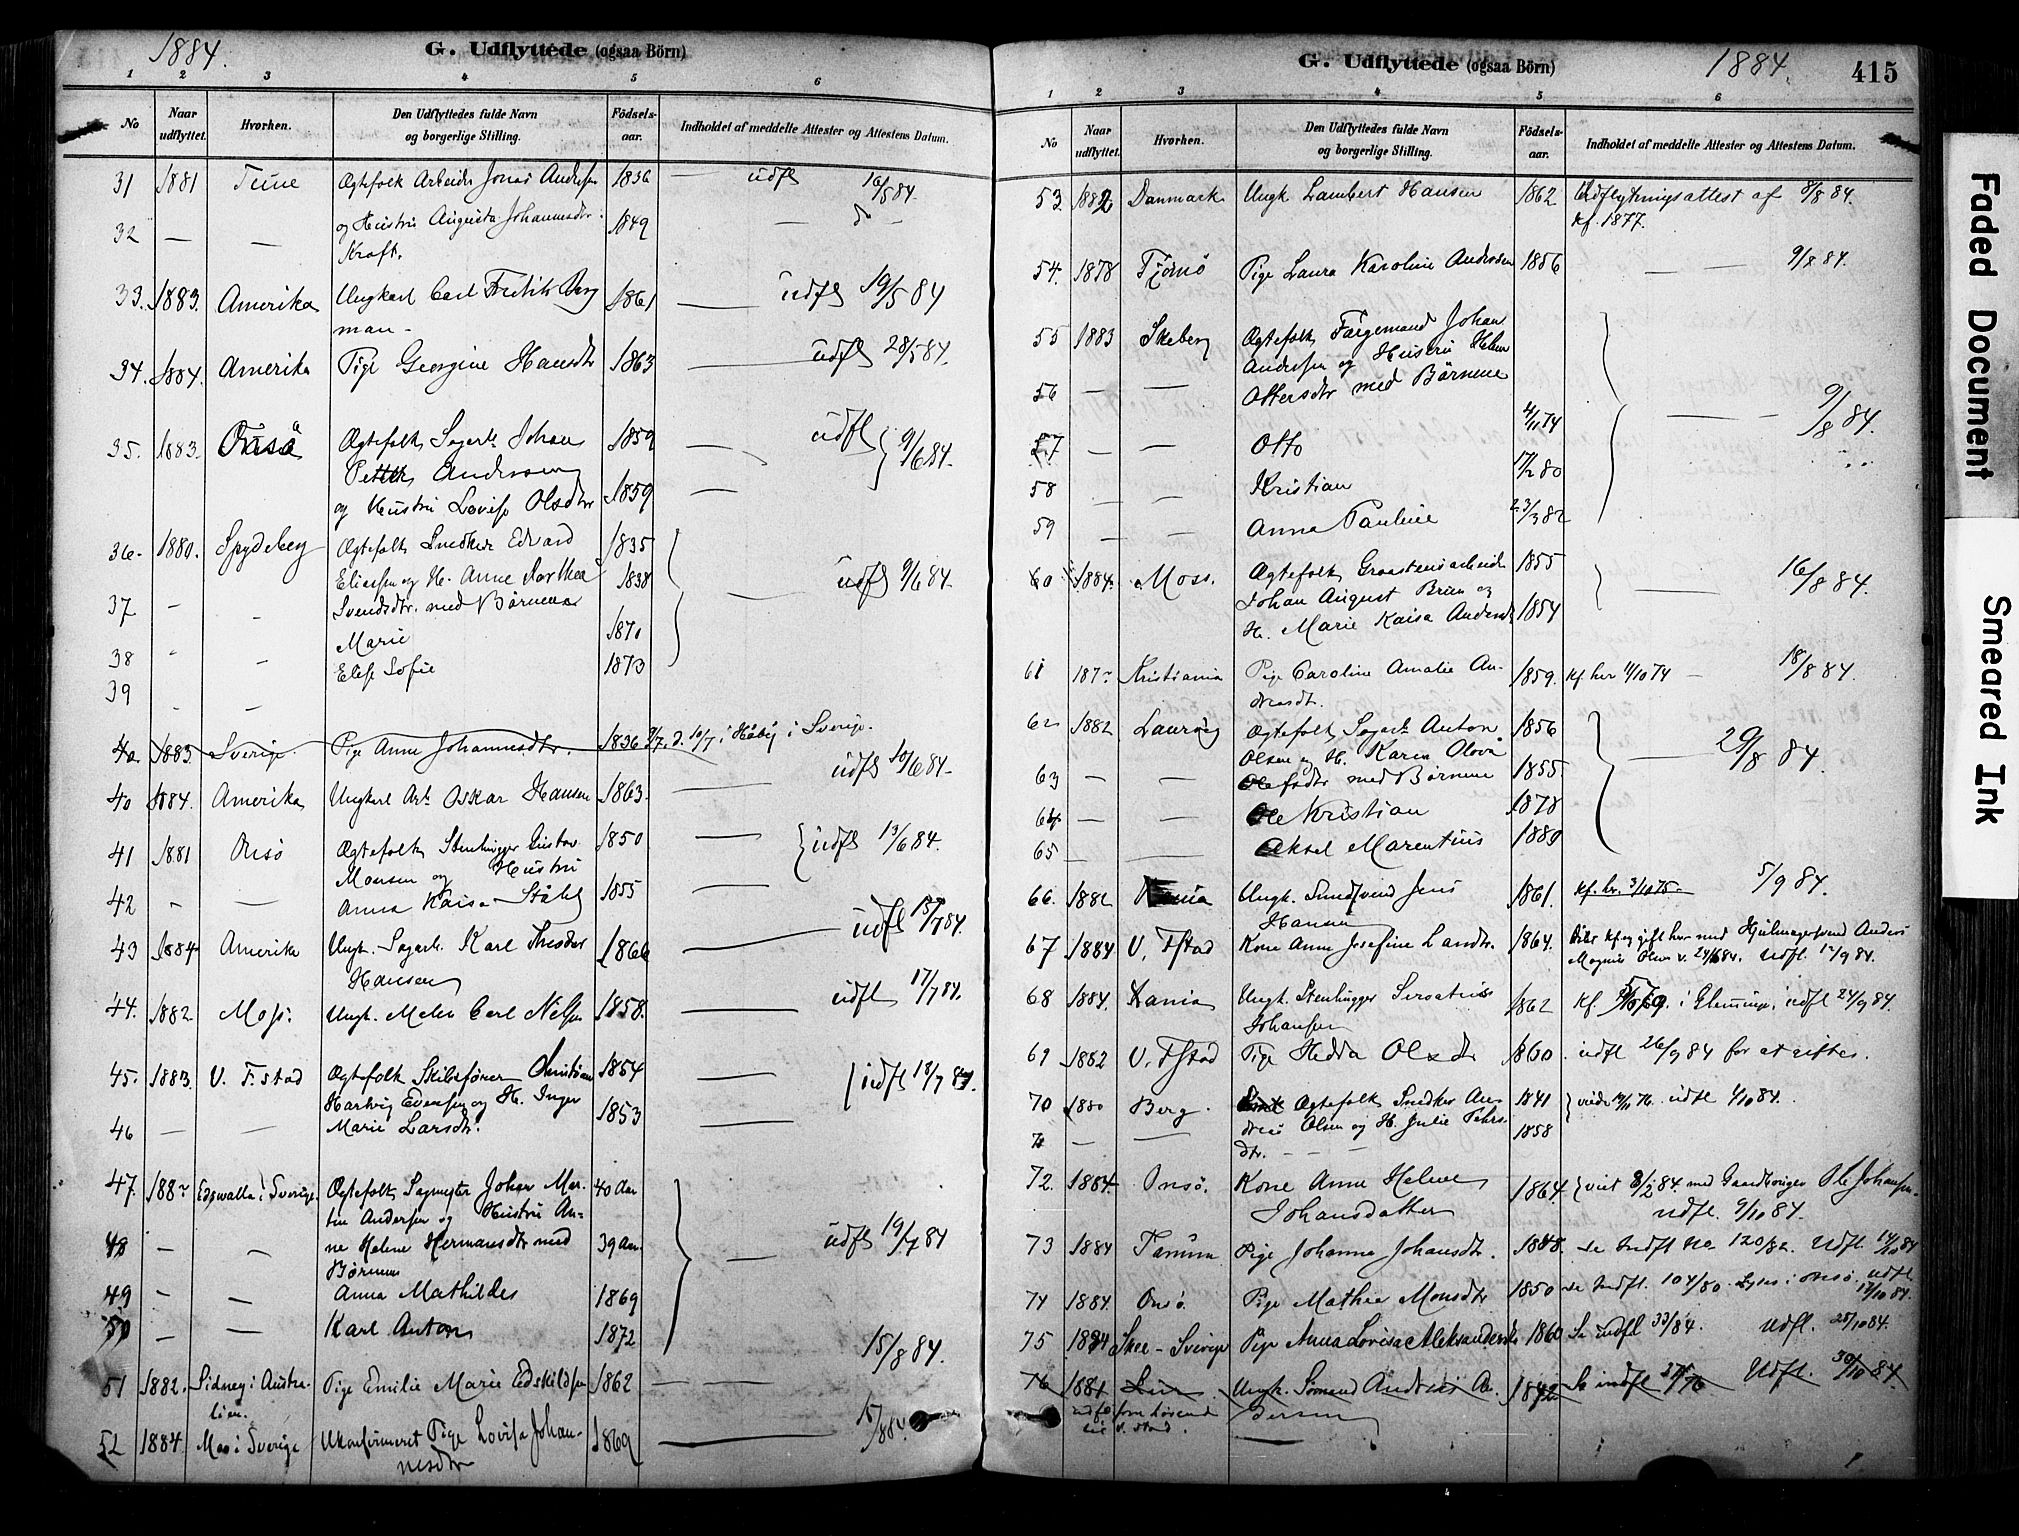 1884.
G. Udflyttede (ogsaa Börn)
1 2 3 4 5 6
No
Naar udflyttet.
Hvorhen.
Den Udflyttedes fulde Navn og borgerlige Stilling.
Födselsaar.
Indholdet af meddelte Attester og Attestens Datum.
31 1881 Tune Ægtefolk Arbeider Jonas Andersen 1836 — udfl 16/5 84.
32 — — og Hustru Augusta Johannesdtr. 1849 — do
Kraft.
33. 1883. Amerika Ungkarl Carl Fredrik Berg 1861 — udfl 19/5 84
man -
34. 1884. Amerika Pige Georgine Hansdtr 1863 — udfl 28/5 84.
35. 1883. Onsö Ægtefolk Sagarb. Johan 1859 — udfl 9/6 84.
Petter Andersen
og Hustru Lovise Olsdtr 1859 —
36. 1880. Spydeberg Ægtefolk Snedker Edvard 1835
Eliassen og H. Anne Dorthea 1838 — udfl 9/6 84.
37 - - Svendsdtr. med Børnene
Marie 1870
38 - - Elise Sofie 1873
39 - -
40 1883. Sverige. Pige Anne Johannesdtr. 1836 i Sverige.
40 1884. Amerika Ungkarl Arb. Oskar Hansen 1863. — udfl 10/6 84.
41 1881 Onsö Ægtefolk Stenhugger Gustav 1850 — udfl 13/6 84.
Monsen og Hustru
42 - — Anna Kaisa Ståhl 1855 —
43 1884 Amerika Ungk. Sagarb. Karl Theodor 1866 — udfl 15/7 84.
Hansen
44. 1882 Moss. Ungk. Maler Carl Nelsen 1858. — udfl 17/7 84.
45. 1883. V. F.stad Ægtefolk Skibsfører Christian 1854 — udfl 18/7 84.
Hartvig Evensen og H. Inger 1853
46 — — Marie Larsdtr. —
47. 1882 Edsvalla i Sverige. Ægtefolk Sagmester Johan Mar- 40 Aar
tin Andersen og Hustru An-
48 - - ne Helene Hermansdtr med 39 Aar. — udfl 19/7 84
Børnene
49 - - Anna Mathilde 1869
50 - — Karl Anton 1872
51 1882. Sidney i Austra- Pige Emilie Marie Edskildsen 1862 — 15/8 84.
lien.
52 1884. Mo i Sverige Ukonfirmeret Pige Lovise Johan- 1869 — 15/8 84.
nesdtr
G. Udflyttede (ogsaa Börn)
1884.
415
1 2 3 4 5 6
No
Naar udflyttet.
Hvorhen.
Den Udflyttedes fulde Navn og borgerlige Stilling.
Födselsaar.
Indholdet af meddelte Attester og Attestens Datum.
53. 1882 Danmark Ungk Lambert Hansen 1862 Udflytningsattest af 8/8 84.
Kf. 1877.
54. 1878 Tjømø Pige Laura Karoline Andersen 1856 — — 9/8 84.
55 1883 Skeberg Ægtefolk Færgemand Johan
Andersen og Hustru Helene
56 — — Ottersdtr med Børnene — 9/8 84.
57 — — Otto 4/11 74
58 — — Kristian 17/2 80
59 — — Anna Pauline 23/3 82
60 1884. Moss. Ægtefolk Graastensarbeider 1855 — 16/8 84.
Johan August Brun og
H. Marie Kaisa Andersd 1854
61 187- Kristiania Pige Caroline Amalie An- 1859. Kf her 11/10 74 — 18/8 84.
dreasdt.
62 1882 Laurvig Ægtefolk Sagarb. Anton 1856 — 29/8 84.
Olsen og H. Karen Olova
63 — — Olefsdtr med Børnene 1855
64 — — Ole Kristian 1878
65 — — Aksel Marentius 1880
66. 1882 Kania Ungk. Smedsvend Jens 1861. Kf. her 3/10 75 5/9 84.
Hansen
67 1884 V. Fstad Kone Anne Josefine Landtr. 1864. Blev kf. og gift her med Hjulmagersvend Anders
Magnus Olsen Udfl. 17/9 84.
68 1884. Kania Ungk. Stenhugger Servatius 1862 Kf i Glemminge, udfl 24/9 84.
Johansen
69 1882 V. Fstad Pige Hedda Olsdtr 1860. udfl 26/9 84 for at giftes.
70 1880 Berg. Ægtefolk Snedker An- 1841 viede udfl 4/10 84.
dreas Olsen og H. Julie Pehrs- 1858
71 — — dtr. - - -
72. 1884. Onsø. Kone Anne Helene 1864. viet 8/2 84. med Gaardbruger Ole Johansen.
Johansdatter udfl. 9/10 84.
73 1884 Tanum Pige Johanne Johansdtr. 1848. se Indfl No 120/82. Udfl. 14/10 84
74 1884. Onsø. Pige Mathea Monsdtr 1850 se Indfl. 104/80. Lyses i Onsø. udfl 17/10 84.
75 1884 Skee - Sverige Pige Anna Lovisa Aleksandersd 1860 Se indfl 33/84. Udfl. 28/10 84.
76 1881 Ungk. Sømand Andreas An- 1842 Se indfl Udfl. 30/10 84.
udfl som hørende dersen
til V. Fstad.
Faded Document
Smeared Ink